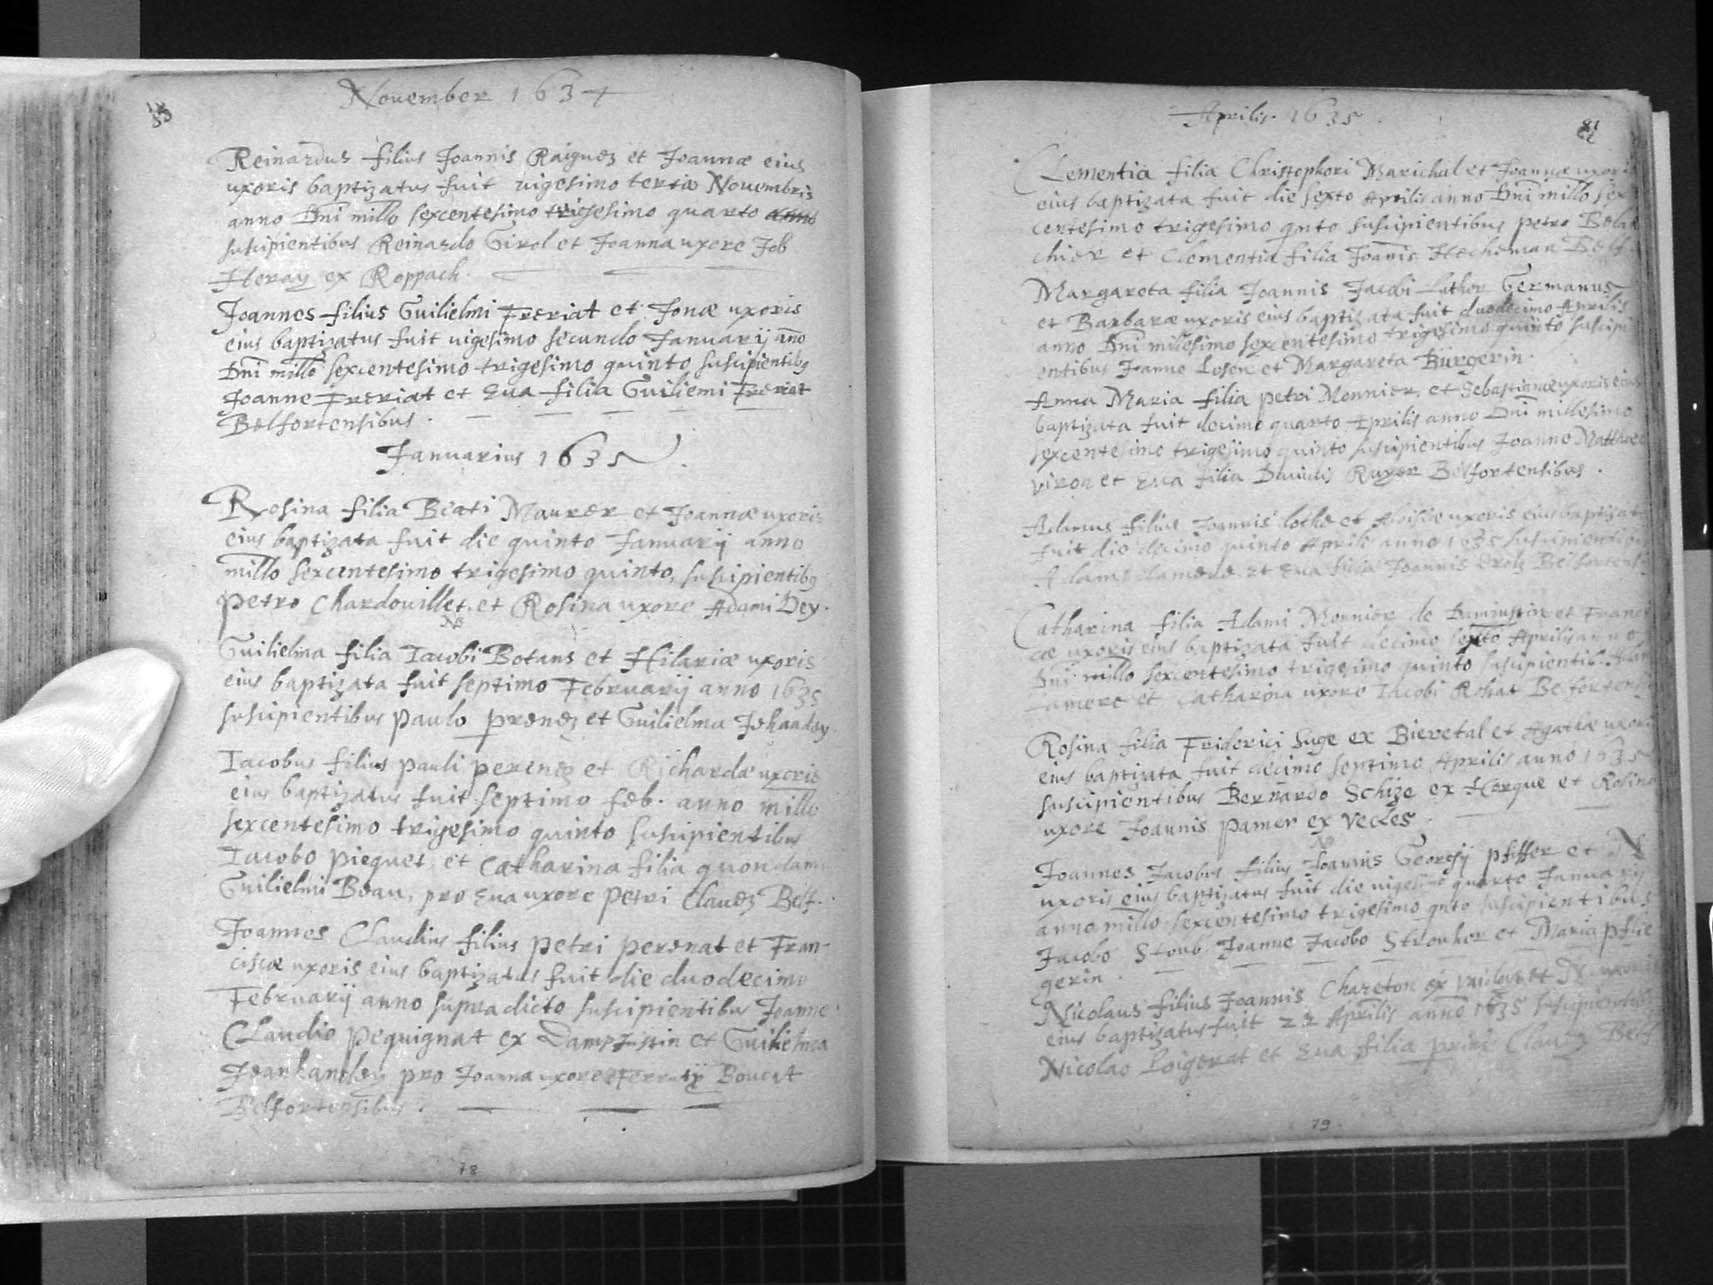 November 1634
Reinardus filius Joannis Raiguez et Joannæ eius
uxoris baptizatus fuit vigesimo tertio Novembris
anno Dni millo sexcentesimo trigesimo quarto
suscipientibus Reinardo Girol et Joanna uxore Job
Heray ex Roppach.
Joannes filius Guilielmi Freriat et Jonæ uxoris
eius baptizatus fuit vigesimo secundo Januarij año
Dni millo sexcentesimo trigesimo quinto suscipientibq
Joanne Freriat et Eua filia Guiliemi Freriat
Belfortensibus.
Januarius 1635
Rosina filia Beati Maurer et Joannæ uxoris
eius baptizata fuit die quinto Januarij anno
millo sexcentesimo trigesimo quinto, suscipientibq
Petro Chardouillet et Rosina uxore Adami Dey.
NB
Guilielma filia Iacobi Botans et Hilariæ uxoris
eius baptizata fuit septimo Februarij anno 1635
suscipientibus Paulo prenez et Guilielma Jehanday
Iacobus filius pauli perenez et Richardæ uxoris
eius baptizatus fuit septimo feb. anno millo
sexcentesimo trigesimo quinto suscipientibus
Iacobo piequet et Catharina filia quondam
Guilielmi Beau, pro Eua uxore Petri Clauez Belf.
Joannes Claudius filius Petri perenat et Fran-
ciscæ uxoris eius baptizatus fuit die duodecimo
Februarij anno supradicto suscipientibus Joanne
Claudio Pequignat ex et Guilielma
pro Joanna uxore Boucat
Belfortensibus.
78
Aprilis. 1635
81
Clementia filia Christophori Marichal et Joannæ uxoris
eius baptizata fuit die sexto Aprilis anno Dni millo sex
centesimo trigesimo qnto suscipientibus petro Bela
chier et Clementia filia Joanis Hecheman Belf.
Margareta filia Joannis Jacobi Luther Germanus
et Barbaræ uxoris eius baptizata fuit duodecimo Aprilis
anno Dni millesimo sexcentesimo trigesimo quinto suscipi
entibus Joanne Losen et Margareta Bürgerin.
Anna Maria filia petri Monnier, et Sebastianæ uxoris eius
baptizata fuit decimo quarto Aprilis anno Dni millesimo
sexcentesimo trigesimo quinto suscipientibus Joanne Matthæo
viron et Eua filia Dauidis Rayer Belfortensibus.
Adamus filius Joannis lothe et uxoris eius baptizat
fuit die decimo quinto Aprilis anno 1635 suscipientibus
Adamo lamere et Eua filia Joannis Belfortens
Catharina filia Adami Monnier de et Franci
cæ uxoris eius baptizata fuit decimo sexto Aprilis anno
Dni millo sexcentesimo trigesimo quinto suscipientib. Adam
Lamere et Catharina uxore Iacobi Rosat Belfortens
Rosina filia Friderici Suge ex Bieretal et Agathæ uxoris
eius baptizata fuit decimo septimo Aprilis anno 1635
suscipientibus Bernardo Schize ex Horque et Rosina
uxore Joannis pamer ex Vecles.
Joannes Jacobus filius Joannis Georgij pfiffer et N
uxoris eius baptizatus fuit die vigesimo quarto Januarij
anno millo sexcentesimo trigesimo qnto suscipientibus
Jacobo Stoub Joanne Jacobo Strouker et Maria pflie
gerin.
Nicolaus filius Joannis Chareton ex et N uxoris
eius baptizatus fuit 22 Aprilis anno 1635 suscipientib
Nicolao Loigerat et Eua filia Belf
79